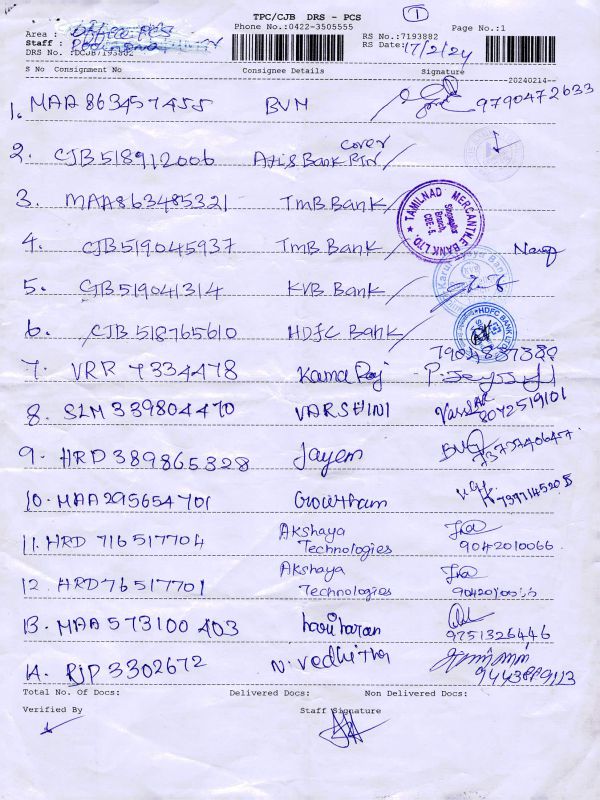 TPC/CJB DRS - PCS
Phone No.:0422-3505555
1
Area :
Staff :
DRS No. :DCJB7193882
RS No.:7193882
RS Date:17/2/24
Page No.:1
S No Consignment No Consignee Details Signature
20240214
1. MAA 863457455 BVM 9790472633
2. CJB 518912006 Axis Bank RTN cover
3. MAA 863485321 TMB Bank
TAMILNAD MERCANTILE BANK LTD.
4. CJB 519045937 TMB Bank
5. CJB 519041314 KVB Bank
6. CJB 518765610 HDFC Bank
HDFC BANK LTD
7. VRR 7334478 Kama Raj
8. SLM 339804470 VARSHINI 8072519101
9. HRD 389865328 Jayem
10. MAA 295654701 Gowtham
11. HRD 716517704 Akshaya Technologies 9042010066
12. HRD 76517701 Akshaya Technologies
13. MAA 573100403 hariharan 9751326446
14. RJP 3302672 N. Vedhitha
Total No. Of Docs: Delivered Docs: Non Delivered Docs:
Verified By Staff Signature